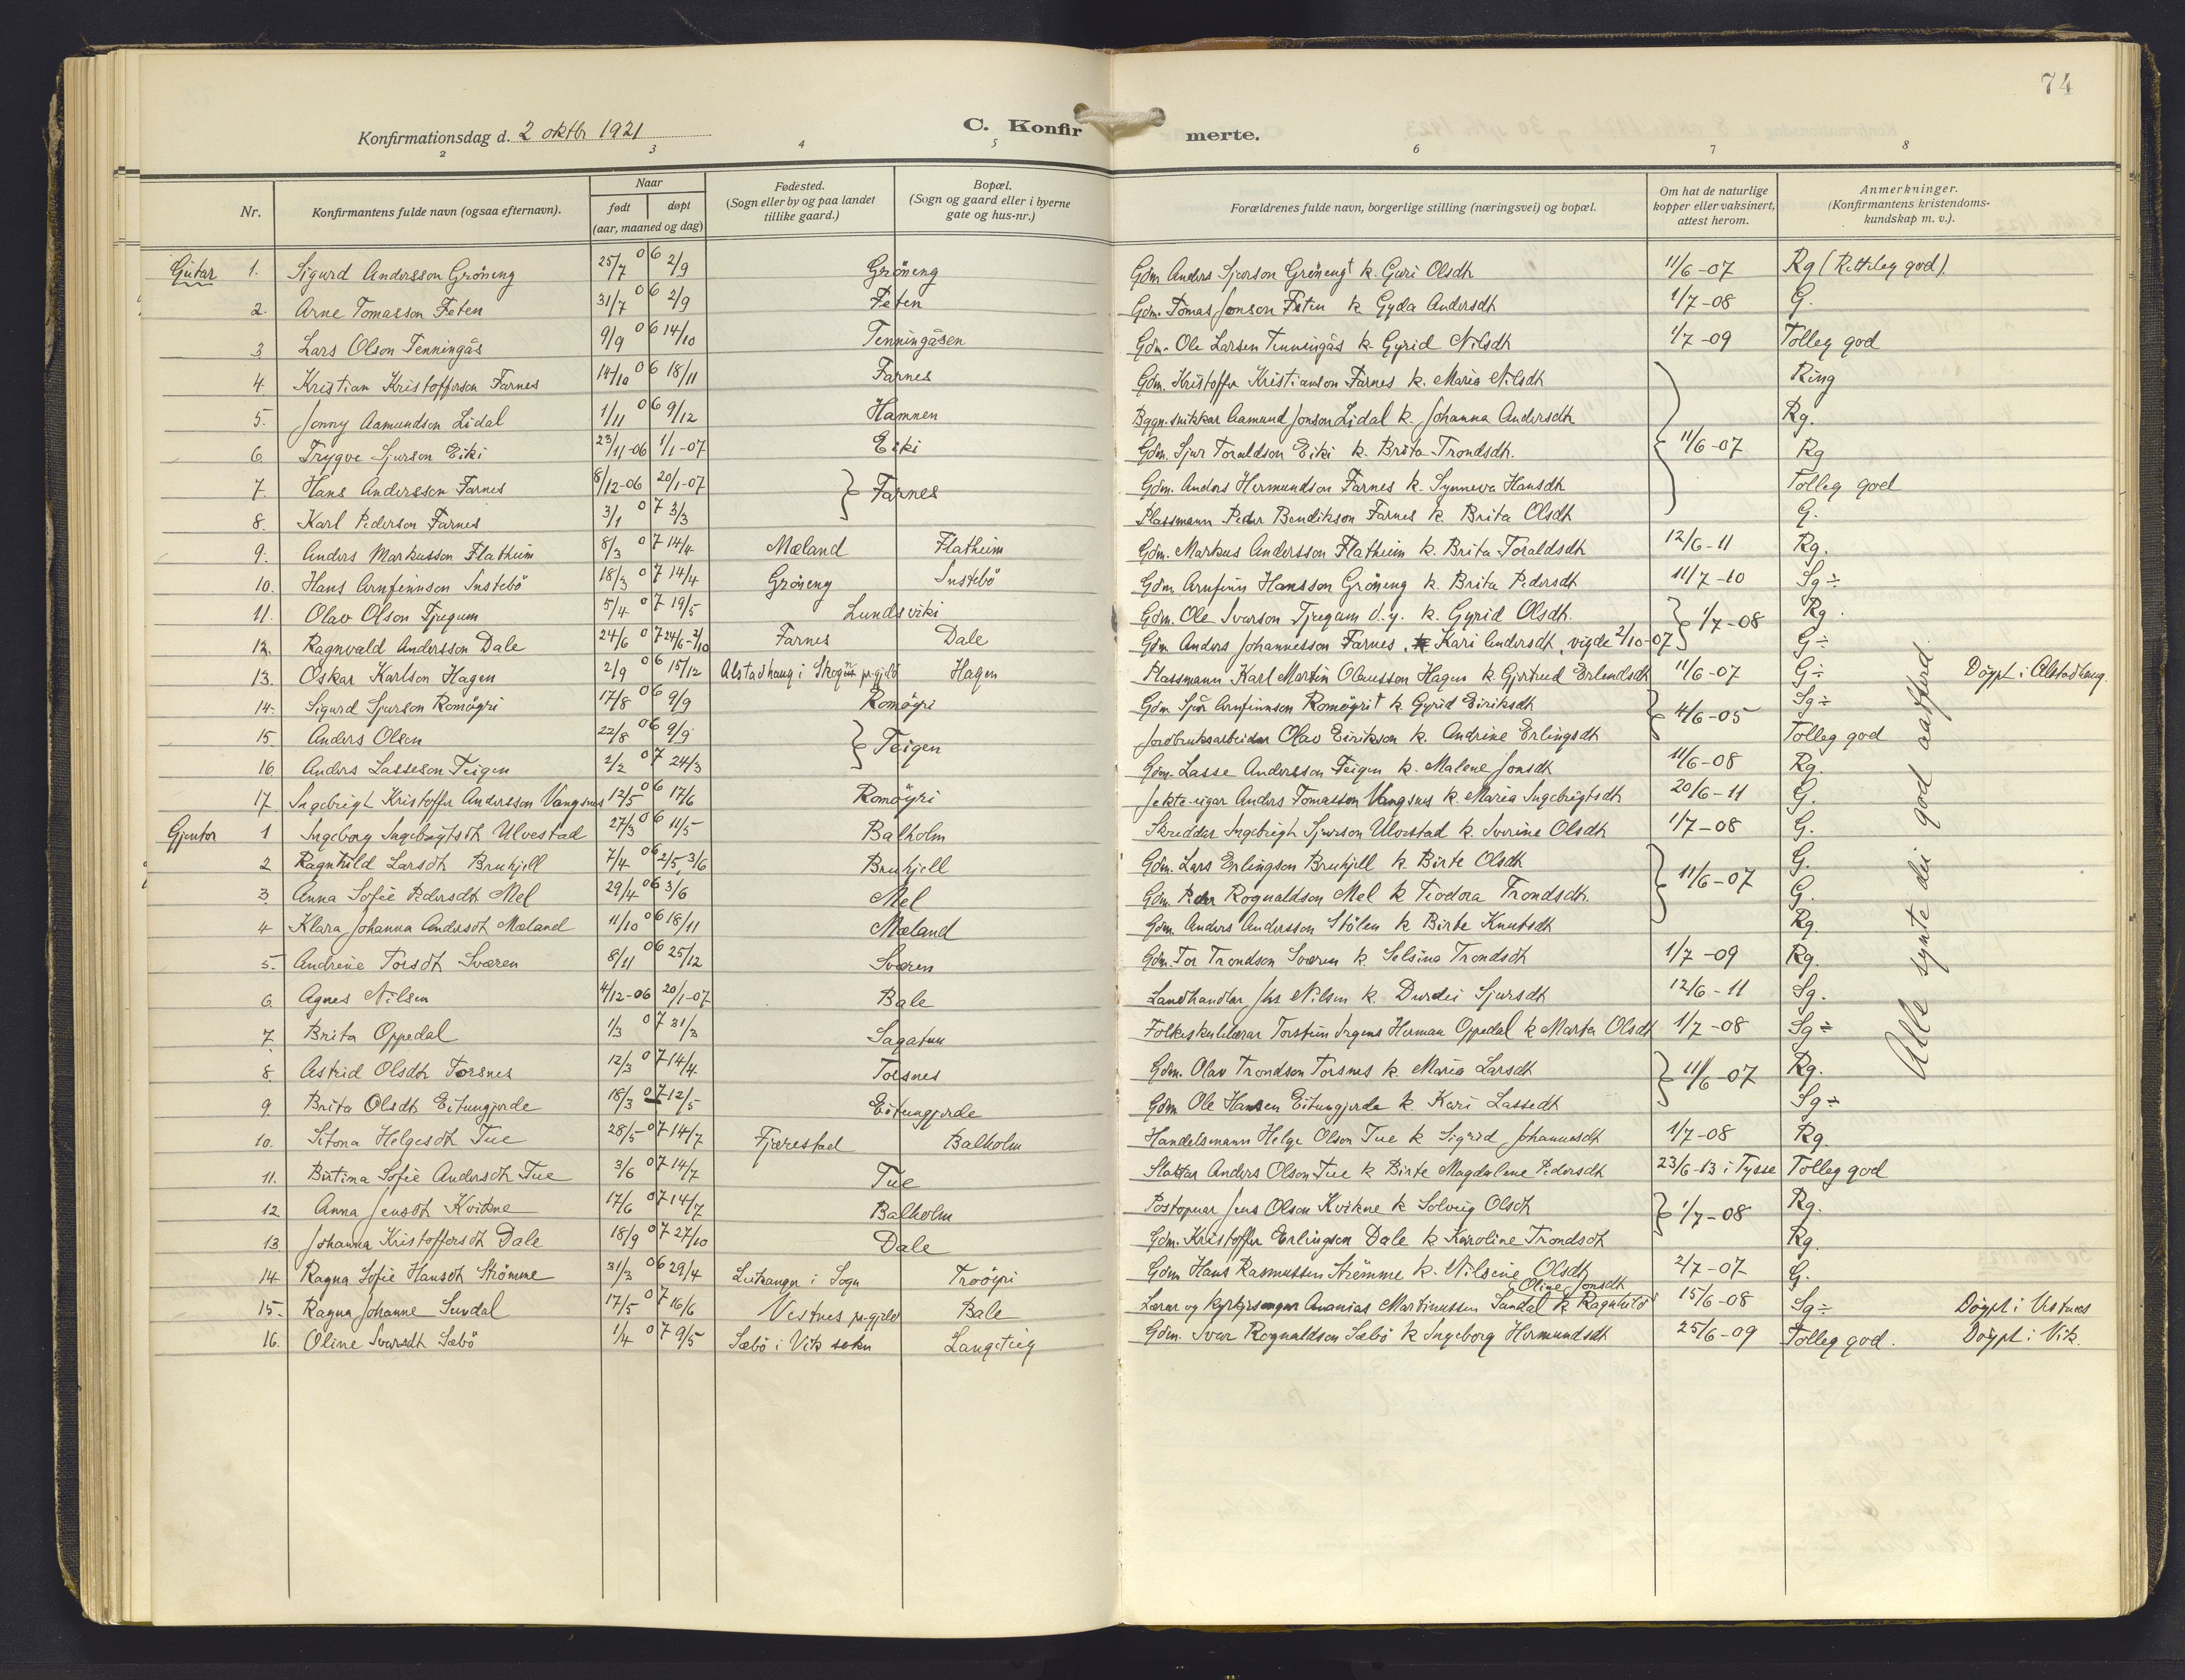 74
Konfirmationsdag d. 2 oktbr 1921
C. Konfir merte.
2 3 4 5 6 7 8
Nr. Konfirmantens fulde navn (ogsaa efternavn). Naar født døpt (aar, maaned og dag) Fødested. (Sogn eller by og paa landet tillike gaard.) Bopæl. (Sogn og gaard eller i byerne gate og hus-nr.) Forældrenes fulde navn, borgerlige stilling (næringsvei) og bopæl. Om hat de naturlige kopper eller vaksinert, attest herom. Anmerkninger. (Konfirmantens kristendoms-kundskap m. v.).
Gutar 1. Sigurd Andersson Gröneng 25/7 06 2/9 Gröneng Gdm Anders Sjurson Gröneng† k. Guri Olsdtr 11/6-07 Rg (Retteleg god)
2. Arne Tomasson Feten 31/7 06 2/9 Feten Gdm. Tomas Jonson Feten k Gyda Andersdtr 1/7-08 G.
3 Lars Olson Tenningås 9/9 06 14/10 Tenningåsen Gdm. Ole Larsen Tenningås k. Gyrid Nilsdtr 1/7-09 Tolleg god
4. Kristian Kristofferson Farnes 14/10 06 18/11 Farnes Gdm. Kristoffer Kristianson Farnes k. Maria Nilsdtr Ring
5. Jonny Aamundson Lidal 1/11 06 9/12 Hamnen Bygn.snikkar Aamund Jonson Lidal k. Johanna Andersdtr Rg.
6. Trygve Sjurson Eiki 23/11-06 1/1-07 Eiki Gdm. Sjur Toraldson Eiki k. Brita Trondsdtr. } 11/6-07 Rg
7. Hans Andersson Farnes 8/12-06 20/1-07 } Farnes Gdm. Anders Hermundson Farnes k. Synneva Hansdtr Tolleg god
8. Karl Pederson Farnes 3/1 07 3/3 Plassmann Peder Bendikson Farnes k. Brita Olsdtr G.
9. Anders Markusson Flatheim 8/3 07 14/4 Mæland Flatheim Gdm. Markus Andersson Flatheim k. Brita Toraldsdtr 12/6-11 Rg.
10. Hans Arnfinnson Sustebö 18/3 07 14/4 Gröneng Sustebö Gdm Arnfinn Hansson Gröneng k. Brita Pedersdtr 11/7-10 Sg÷
11. Olav Olson Tjugum 5/4 07 19/5 Lundsviki Gdm. Ole Ivarson Tjugum d.y. k. Gyrid Olsdtr. } 1/7-08 Rg.
12. Ragnvald Andersson Dale 24/6 07 24/6-2/10 Farnes Dale Gdm Anders Johannesson Farnes. k Kari Andersdtr, vigde 2/10-07 G÷
13. Oskar Karlson Hagen 2/9 06 15/12 Alstadhaug i Skogn pr.gjeld Hagen Plassmann Karl Martin Olausson Hagen k. Gjertrud Erlendsdtr 11/6-07 G÷ Döypt i Alstadhaug.
14. Sigurd Sjurson Romöyri 17/8 06 9/9 Romöyri Gdm Sjur Arnfinnson Romöyri† k. Gyrid Eiriksdtr } 4/6-05 Sg÷
15. Anders Olsen 22/8 06 9/9 } Teigen Jordbruksarbeidar Olav Eirikson k. Andrine Erlingsdtr Tolleg god
16. Anders Lasseson Teigen 2/2 07 24/3 Gdm. Lasse Andersson Teigen k. Malene Jonsdtr 11/6-08 Rg.
17. Ingebrigt Kristoffer Andersson Vangsnes 12/5 06 17/6 Romöyri Jekte-eigar Anders Tomasson Vangsnes k. Maria Ingebrigtsdtr 20/6-11 G.
Gjentor 1 Ingeborg Ingebrigtsdtr Ulvestad 27/3 06 11/5 Balholm Skreddar Ingebrigt Sjurson Ulvestad k. Severine Olsdtr 1/7-08 G.
2 Ragnhild Larsdtr Bruhjell 7/4 06 2/5, 3/6 Bruhjell Gdm. Lars Erlingson Bruhjell k. Birte Olsdtr G.
3. Anna Sofie Pedersdtr Mel 29/4 06 3/6 Mel Gdm. Peder Rognaldson Mel k Teodora Trondsdtr. } 11/6-07 G.
4 Klara Johanna Andersdt Mæland 11/10 06 18/11 Mæland Gdm. Anders Andersson Stölen k Birte Knutsdtr Rg.
5. Andrine Torsdtr Sværen 8/11 06 25/12 Sværen Gdm. Tor Trondson Sværen k. Selsina Trondsdtr 1/7-09 Rg.
6. Agnes Nilsen 4/12-06 20/1-07 Bale Landhandlar Jhs Nilsen k. Durdei Sjursdtr 12/6-11 Sg.
7. Brita Oppedal 1/3 07 31/3 Sagatun Folkeskulelærar Torstein Jrgens Herman Oppedal k Marta Olsdtr 1/7-08 Sg÷
8. Astrid Olsdtr Torsnes 12/3 07 14/4 Torsnes Gdm. Olav Trondson Torsnes k. Maria Larsdtr } 11/6-07 Rg.
9. Brita Olsdtr Eitungjerde 18/3 07 12/5 Eitungjerde Gdm Ole Hansen Eitungjerde k. Kari Lassedtr Sg÷
10. Sitona Helgesdtr Tue 28/5 07 14/7 Fjærestad Balholm Handelsmann Helge Olson Tue k Sigrid Johannesdtr 1/7-08 Rg.
11. Birtina Sofie Andersdtr Tue 3/6 07 14/7 Tue Slaktar Anders Olson Tue k Birte Magdalene Pedersdtr 23/6-13 i Tysse Tolleg god
12 Anna Jensdtr Kvikne 17/6 07 14/7 Balholm Postopnar Jens Olson Kvikne k Solveig Olsdtr } 1/7-08 Rg.
13 Johanna Kristoffersdtr Dale 18/9 07 27/10 Dale Gdm. Kristoffer Erlingson Dale k Karoline Trondsdtr Rg.
14 Ragna Sofie Hansdtr Strömme 31/3 06 29/4 Leikanger i Sogn Troöyri Gdm Hans Rasmussen Strömme k. Nilsine Olsdtr 2/7-07 G.
15. Ragna Johanne Sundal 17/5 07 16/6 Vestnes pr.gjeld Bale Lærar og kyrkjesongar Ananias Martinussen Sundal k Ragnhild Oline Jonsdtr 15/6-08 Sg÷ Döypt i Vestnes
16. Oline Ivarsdtr Sæbö 1/4 07 9/5 Sæbö i Vik sokn Langeteig Gdm. Ivar Rognaldson Sæbö k Ingeborg Hermundsdtr 25/6-09 Tolleg god. Döypt i Vik.
Alle synte dei god aatferd.